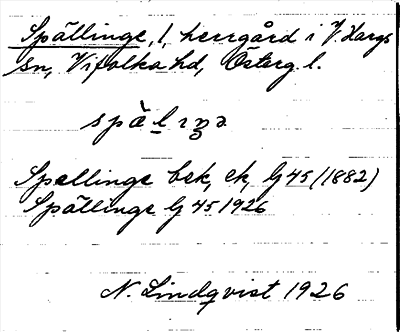 Spällinge, 1, herrgård i V. Hargs
sn, Vifolka hd, Österg. l.
spä̀lıŋə
Spellinge bek, ek, Gj 45 (1882)
Spällinge Gj 45 1926
N. Lindqvist 1926